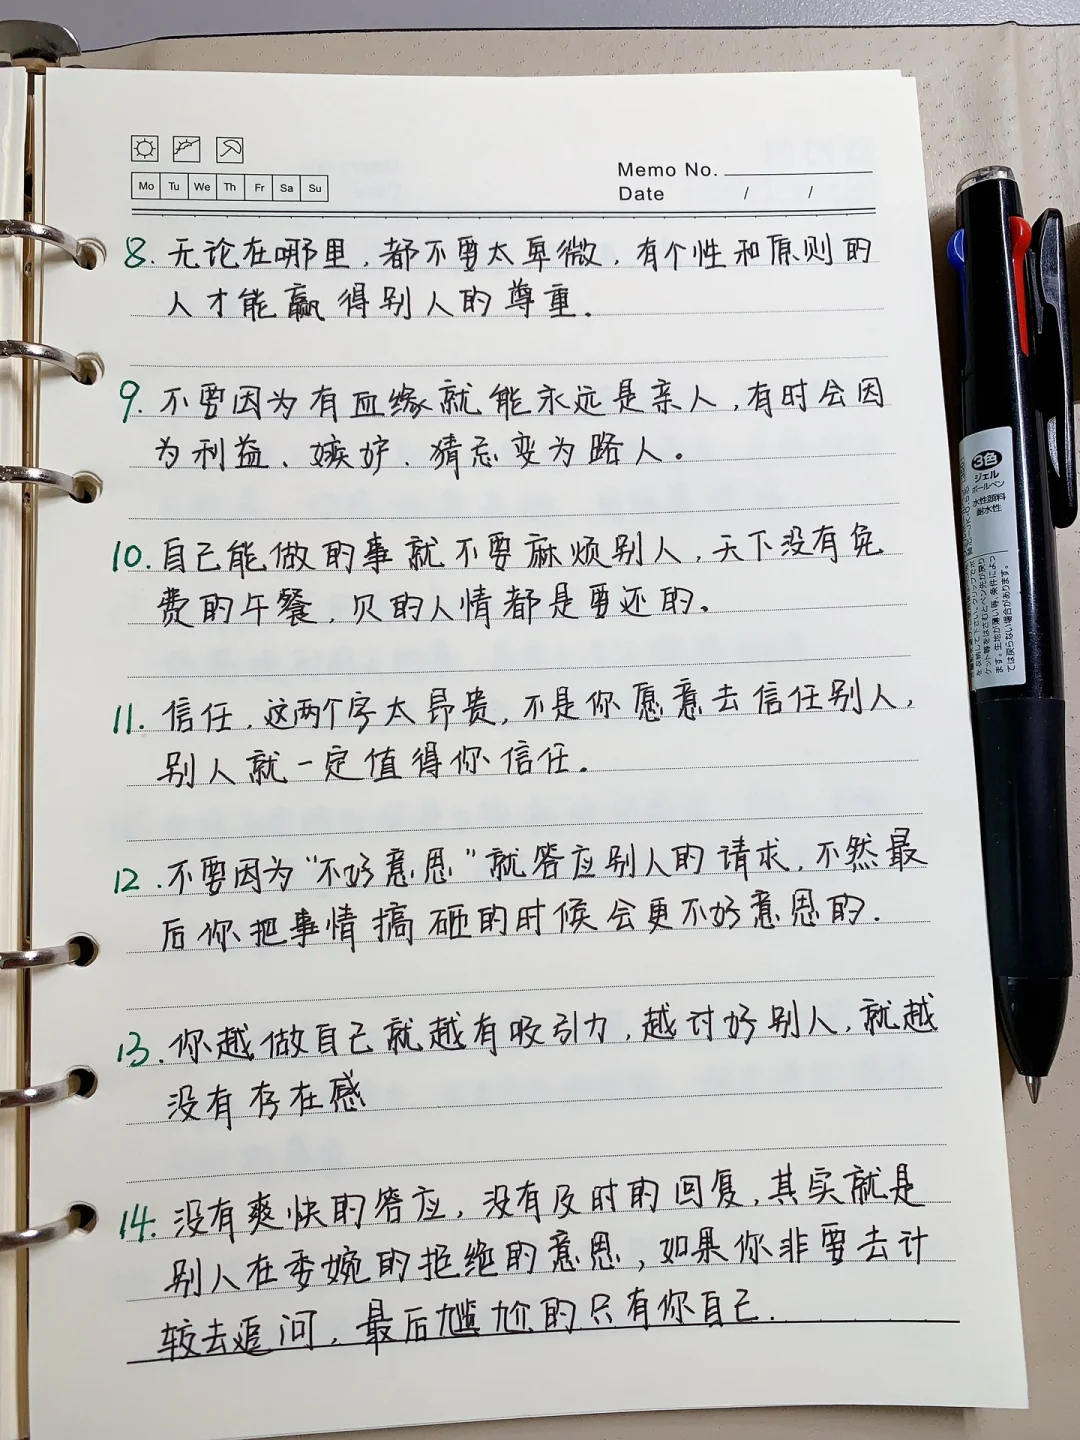 Mo Tu We Th Fr Sa Su
Memo No.
Date / /
8. 无论在哪里，都不要太卑微，有个性和原则的
人才能赢得别人的尊重.
9. 不要因为有血缘就能永远是亲人，有时会因
为利益、嫉妒、猜忌变为路人。
10. 自己能做的事就不要麻烦别人，天下没有免
费的午餐，欠的人情都是要还的。
11. 信任，这两个字太昂贵，不是你愿意去信任别人，
别人就一定值得你信任.
12. 不要因为“不好意思”就答应别人的请求，不然最
后你把事情搞砸的时候会更不好意思的.
13. 你越做自己就越有吸引力，越讨好别人，就越
没有存在感
14. 没有爽快的答应，没有及时的回复，其实就是
别人在委婉的拒绝的意思，如果你非要去计
较去追问，最后尴尬的只有你自己.
3色
ジェル
ボールペン
水性顔料